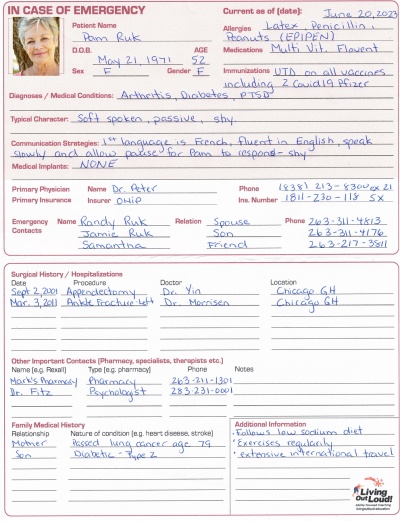 IN CASE OF EMERGENCY
Current as of (date): June 20, 2023
Patient Name
Pam Ruk
Allergies Latex, Penicillin,
Peanuts (EPIPEN)
D.O.B. AGE
May 21, 1971 52
Medications Multi Vit. Flovent
Sex F Gender F
Immunizations UTD on all vaccines
including 2 Covid19 Pfizer
Diagnoses / Medical Conditions: Arthritis, Diabetes, PTSD
Typical Character: Soft spoken, passive, shy
Communication Strategies: 1st language is French, fluent in English, speak
slowly and allow pause for Pam to respond - shy
Medical Implants: NONE
Primary Physician Name Dr. Peter Phone (838) 213-8300 ex 21
Primary Insurance Insurer OHIP Ins. Number 1811-230-118 SX
Emergency Contacts Name Randy Ruk Relation Spouse Phone 263-311-4813
Jamie Ruk Son 263-311-4176
Samantha Friend 263-217-3811
Surgical History / Hospitalizations
Date Procedure Doctor Location
Sept 2, 2001 Appendectomy Dr. Yin Chicago GH
Mar. 3, 2011 Ankle Fracture Left Dr. Morrisen Chicago GH
Other Important Contacts (Pharmacy, specialists, therapists etc.)
Name (e.g. Rexall) Type (e.g. pharmacy) Phone Notes
Mark's Pharmacy Pharmacy 263-211-1301
Dr. Fitz Psychologist 283-231-0001
Family Medical History
Relationship Nature of condition (e.g. heart disease, stroke)
Mother Passed lung cancer age 79
Son Diabetic - Type 2
Additional Information
• Follows low sodium diet
• Exercises regularity
• extensive international travel
Living
Out Loud!